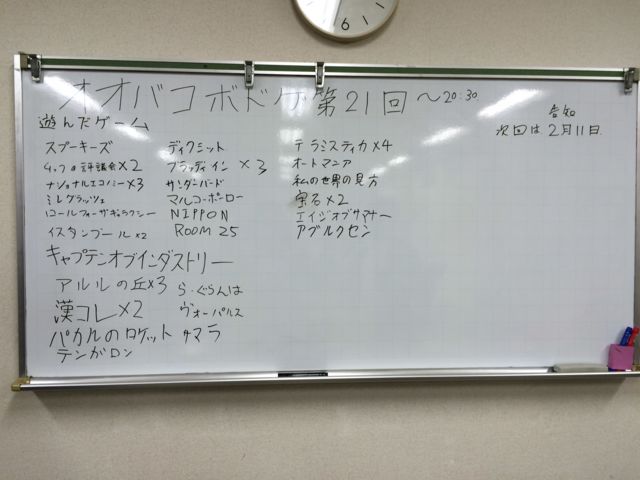 オオバコボドゲ第21回 ~20:30
告知
次回は 2月11日
遊んだゲーム
スプーキーズ
4つの評議会×2
ナショナルエコノミー×3
ミルグラッツェ
ロールフォーザギャラクシー
イスタンブール×2
キャプテンオブインダストリー
アルルの丘×3
漢コレ×2
パカルのロケット
テンガロン
ディクミット
ブラッディイン×3
サンダーバード
マルコ・ポーロ
NIPPON
ROOM 25
ら・ぐらんは
ヴォーパルス
サマラ
テラミスティカ×4
オートマニア
私の世界の見方
宝石×2
エイジオブサマナー
アブルクセン
6
11